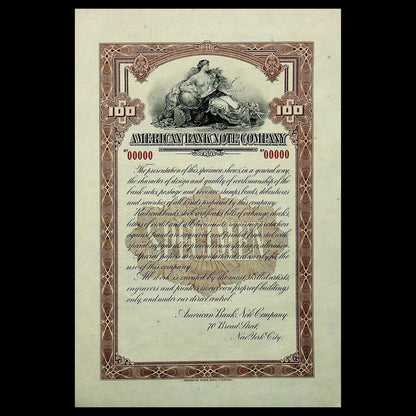 100 100
AMERICAN BANK NOTE COMPANY
Nº 00000 Nº 00000
The presentation of this specimen shows, in a general way,
the character of design and quality of workmanship of the
bank notes, postage and revenue stamps, bonds, debentures
and securities of all kinds prepared by this company.
Railroad bonds, stock certificates, bills of exchange, checks,
letters of credit and all documents requiring protection
against fraud are engraved and printed
special
Special papers are manufactured exclusively for the
use of this company.
All work is executed by the most skilled artists,
engravers and printers in our own fireproof buildings
only, and under our direct control.
American Bank Note Company
70 Broad Street,
New York City.
AMERICAN BANK NOTE COMPANY.